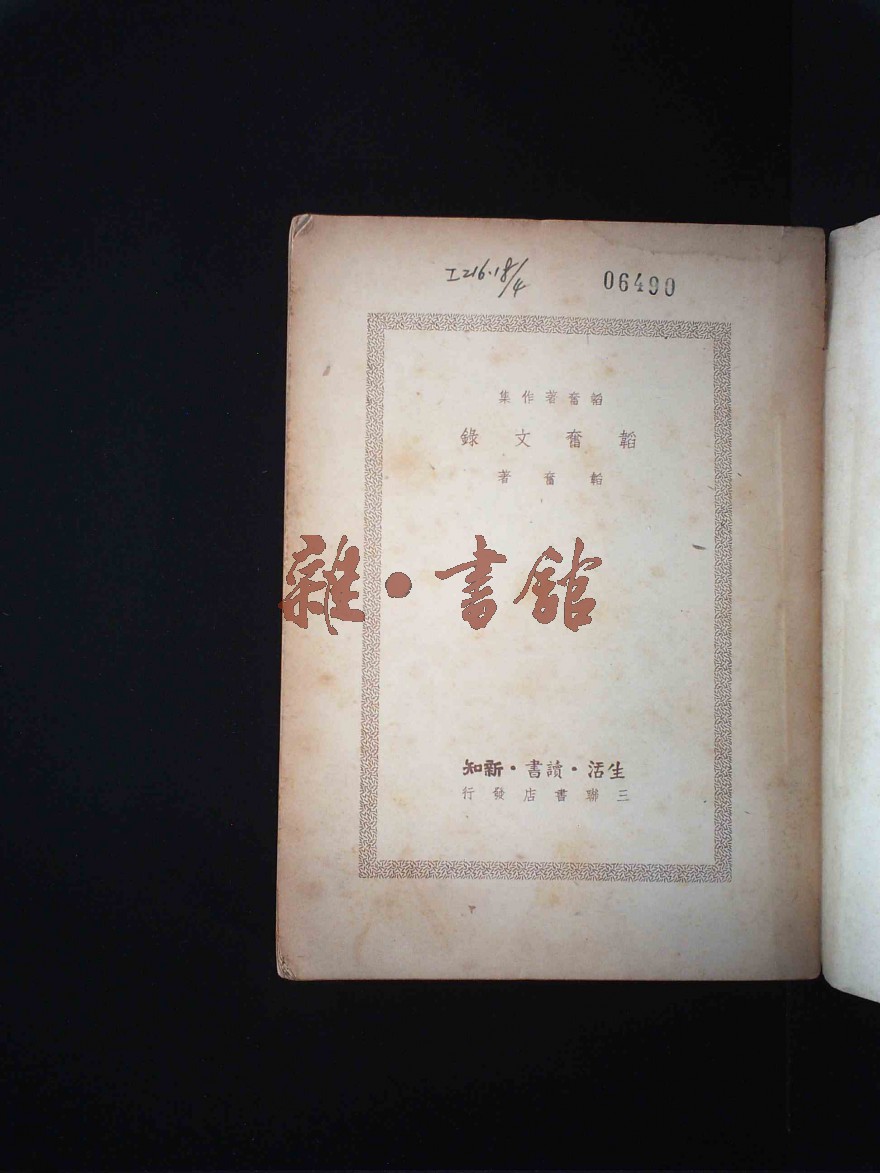 I216.18/4
06490
韜奮著作集
韜奮文錄
韜奮著
雜·書館
生活·讀書·新知
三聯書店發行